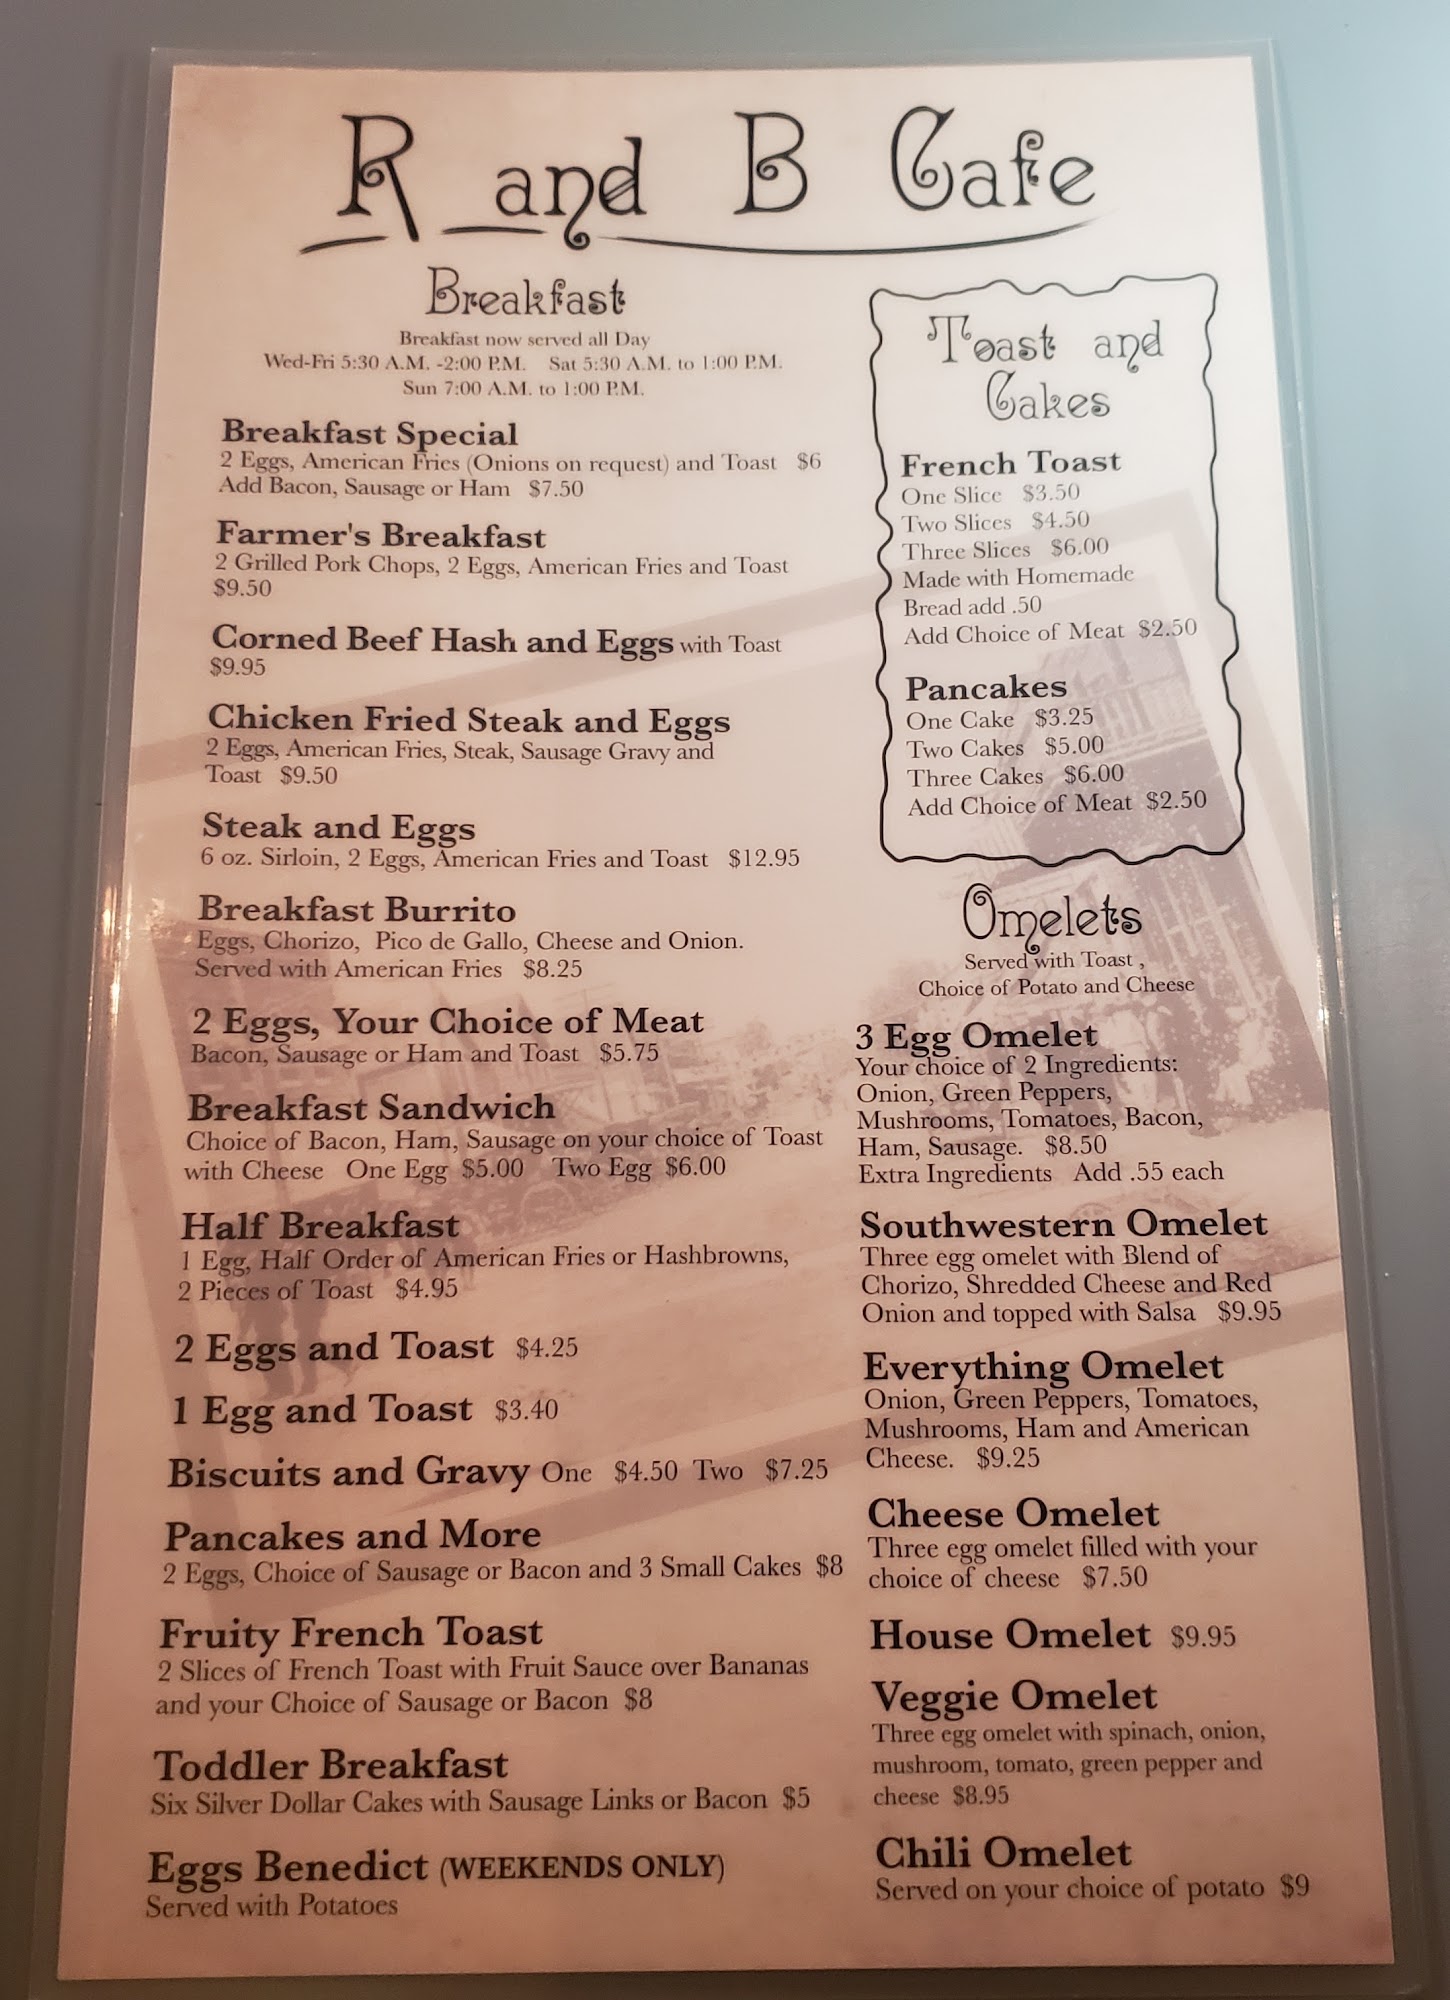 R and B Cafe
Breakfast
Breakfast now served all Day
Wed-Fri 5:30 A.M. -2:00 P.M. Sat 5:30 A.M. to 1:00 P.M.
Sun 7:00 A.M. to 1:00 P.M.
Breakfast Special
2 Eggs, American Fries (Onions on request) and Toast $6
Add Bacon, Sausage or Ham $7.50
Farmer's Breakfast
2 Grilled Pork Chops, 2 Eggs, American Fries and Toast
$9.50
Corned Beef Hash and Eggs with Toast
$9.95
Chicken Fried Steak and Eggs
2 Eggs, American Fries, Steak, Sausage Gravy and
Toast $9.50
Steak and Eggs
6 oz. Sirloin, 2 Eggs, American Fries and Toast $12.95
Breakfast Burrito
Eggs, Chorizo, Pico de Gallo, Cheese and Onion.
Served with American Fries $8.25
2 Eggs, Your Choice of Meat
Bacon, Sausage or Ham and Toast $5.75
Breakfast Sandwich
Choice of Bacon, Ham, Sausage on your choice of Toast
with Cheese One Egg $5.00 Two Egg $6.00
Half Breakfast
1 Egg, Half Order of American Fries or Hashbrowns,
2 Pieces of Toast $4.95
2 Eggs and Toast $4.25
1 Egg and Toast $3.40
Biscuits and Gravy One $4.50 Two $7.25
Pancakes and More
2 Eggs, Choice of Sausage or Bacon and 3 Small Cakes $8
Fruity French Toast
2 Slices of French Toast with Fruit Sauce over Bananas
and your Choice of Sausage or Bacon $8
Toddler Breakfast
Six Silver Dollar Cakes with Sausage Links or Bacon $5
Eggs Benedict (WEEKENDS ONLY)
Served with Potatoes
Toast and
Cakes
French Toast
One Slice $3.50
Two Slices $4.50
Three Slices $6.00
Made with Homemade
Bread add .50
Add Choice of Meat $2.50
Pancakes
One Cake $3.25
Two Cakes $5.00
Three Cakes $6.00
Add Choice of Meat $2.50
Omelets
Served with Toast ,
Choice of Potato and Cheese
3 Egg Omelet
Your choice of 2 Ingredients:
Onion, Green Peppers,
Mushrooms, Tomatoes, Bacon,
Ham, Sausage. $8.50
Extra Ingredients Add .55 each
Southwestern Omelet
Three egg omelet with Blend of
Chorizo, Shredded Cheese and Red
Onion and topped with Salsa $9.95
Everything Omelet
Onion, Green Peppers, Tomatoes,
Mushrooms, Ham and American
Cheese. $9.25
Cheese Omelet
Three egg omelet filled with your
choice of cheese $7.50
House Omelet $9.95
Veggie Omelet
Three egg omelet with spinach, onion,
mushroom, tomato, green pepper and
cheese $8.95
Chili Omelet
Served on your choice of potato $9